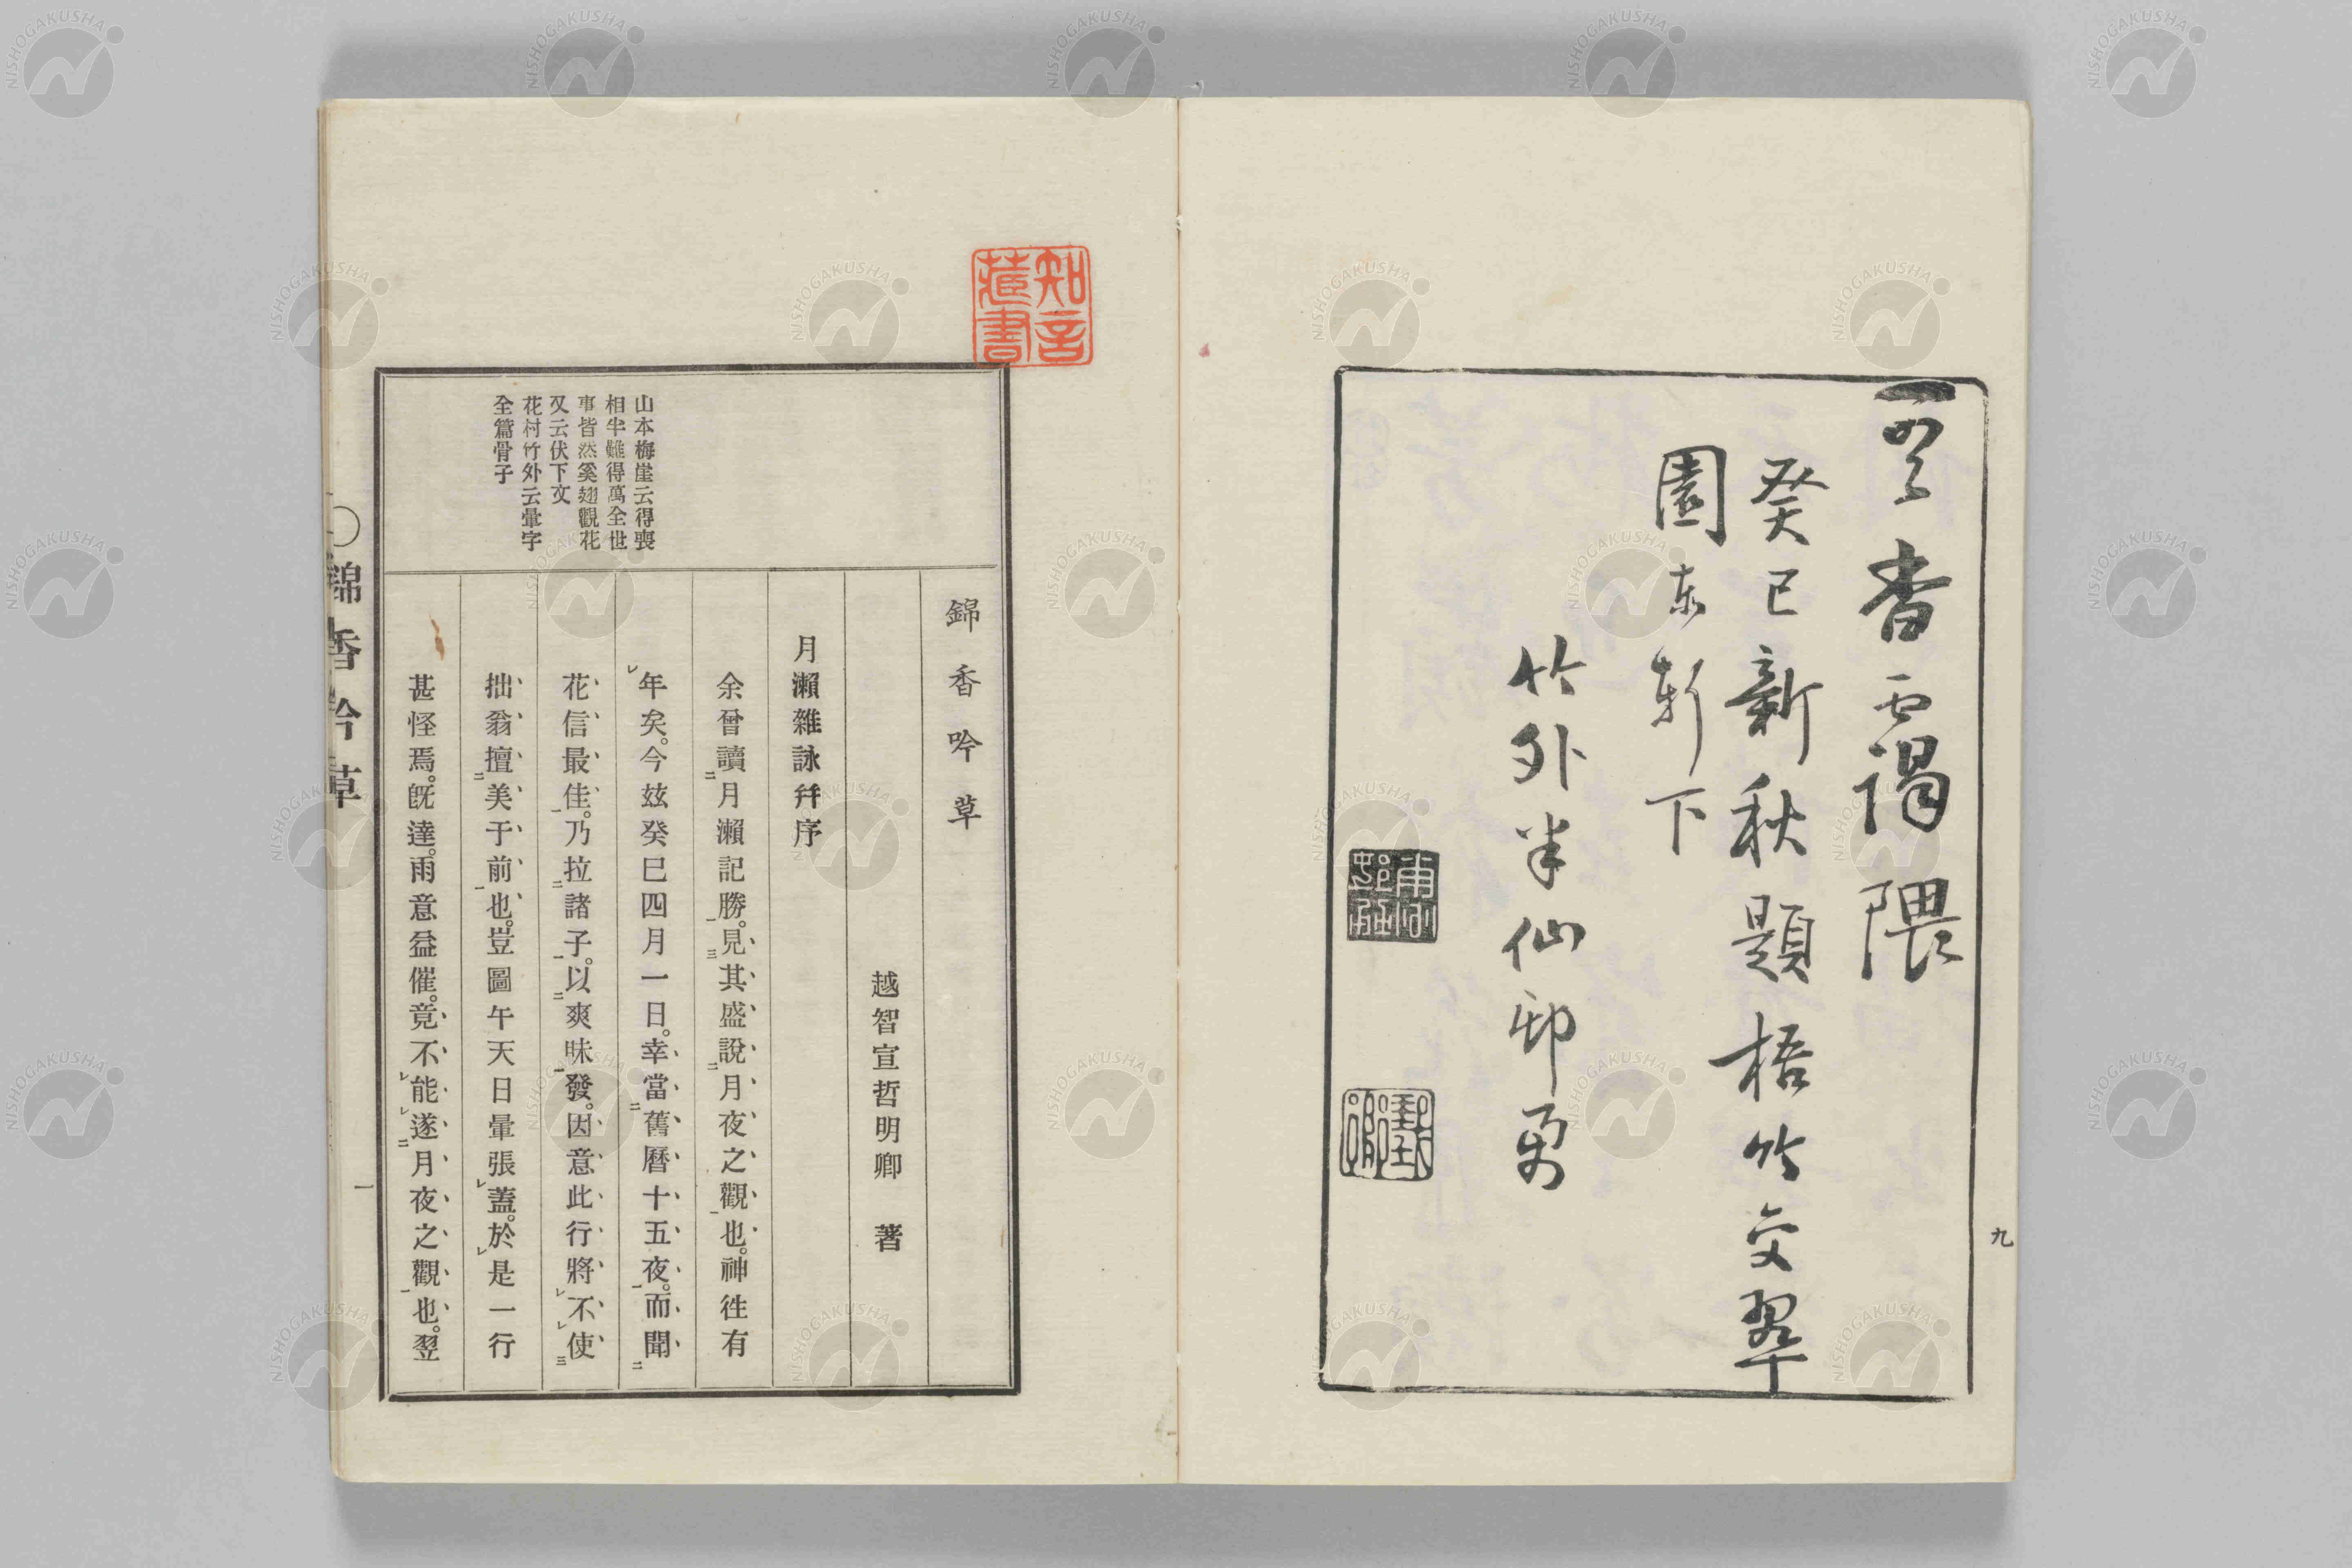 香雲靄隈
癸巳新秋題梧竹交翠
園東軒下
竹外半仙邨
九
知言
藏書
山本梅崖云得喪
相半難得萬全世
事皆然奚翅觀花
又云伏下文
花村竹外云暈字
全篇骨子
錦香吟草
越智宣哲明卿 著
月瀨雜詠幷序
余曾讀二月瀨記勝一。見三其盛說二月夜之觀一也。神徃有
レ年矣。今玆癸巳四月一日。幸當二舊曆十五夜一。而聞二
花信最佳一。乃拉二諸子一。以二爽昧一發。因意此行將レ不レ使三
拙翁擅二美于前一也。豈圖午天日暈張レ蓋。於レ是一行
甚怪焉。旣達。雨意益催。竟不レ能レ遂二月夜之觀一也。翌
〇錦香吟草
一
NISHOGAKUSHA